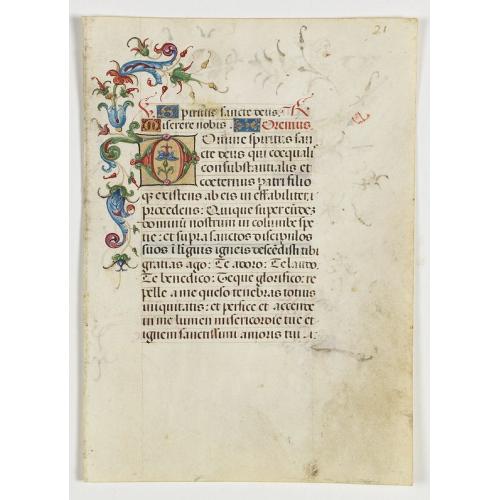 21
V. Spiritus sancte deus. R.
Miserere nobis. Oremus
Domine spiritus san
cte deus qui coequalis
consubstantialis et
coeternus patri filio
q3 existens ab eis in effabiliter
procedens: Quique super eundez
dominū nostrum in columbe spe
tie: et supra sanctos discipulos
suos i liguis igneis descēdisti: tibi
gratias ago: Te adoro: Te laudo.
Te benedico: Teque glorifico: re
pelle a me queso tenebras totius
iniquitatis: et perfice et accende
in me lumen misericordie tue et
ignem sanctissimi amoris tui.